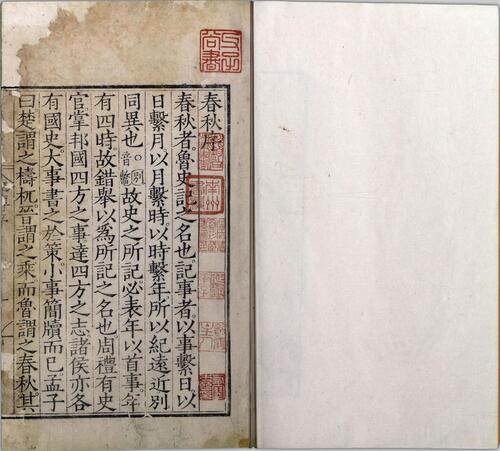 春秋序
春秋者魯史記之名也記事者以事繫日以
日繫月以月繫時以時繫年所以紀遠近別
同異也
故史之所記必表年以首事年
有四時故錯舉以爲所記之名也周禮有史
官掌邦國四方之事達四方之志諸侯亦各
有國史大事書之於策小事簡牘而已孟子
曰楚謂之檮杌晉謂之乘而魯謂之春秋其